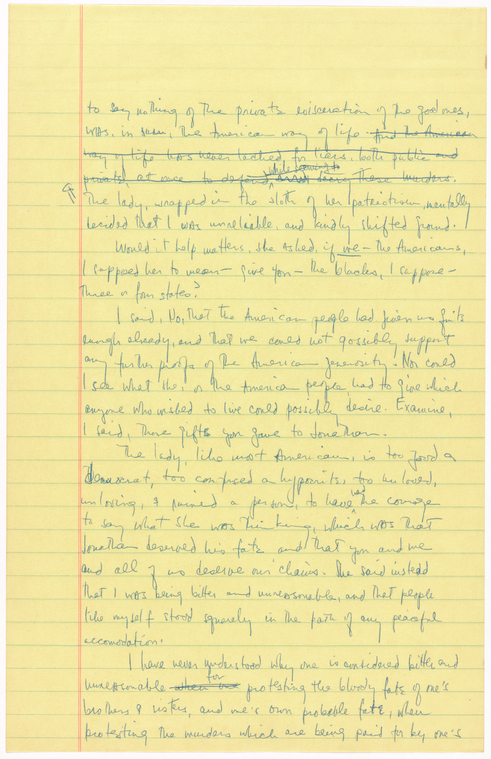 to say nothing of the private evisceration of the godness,
was, in sum, the American way of life. And the American
way of life has never lacked for liars, both public and
private, at once to defend while seeming to these murders.
The lady, wrapped in the sloth of her patriotism, mentally
decided that I was unreliable, and kindly shifted ground.
Would it help matters, she asked, if we - the Americans,
I supposed her to mean - give you - the blacks, I suppose -
three or four states?
I said, No, that the American people had given us gifts
enough already, and that we could not possibly support
any further proofs of the American generosity. Nor could
I see what she or the American people had to give which
anyone who wished to live could possibly desire. Examine,
I said, those gifts you gave to Jonathan.
The lady, like most Americans, is too good a
democrat, too confused a hypocrite, too unloved,
unloving, & ruined a person, to have the courage
to say what she was thinking, which was that
Jonathan deserved his fate and that you and me
and all of us deserve our chains. She said instead
that I was being bitter and unreasonable, and that people
like myself stood squarely in the path of any peaceful
accomodation.
I have never understood why one is considered bitter and
unreasonable when one for protesting the bloody fate of one's
brothers & sisters, and one's own probable fate, when
protesting the murders which are being paid for by one's